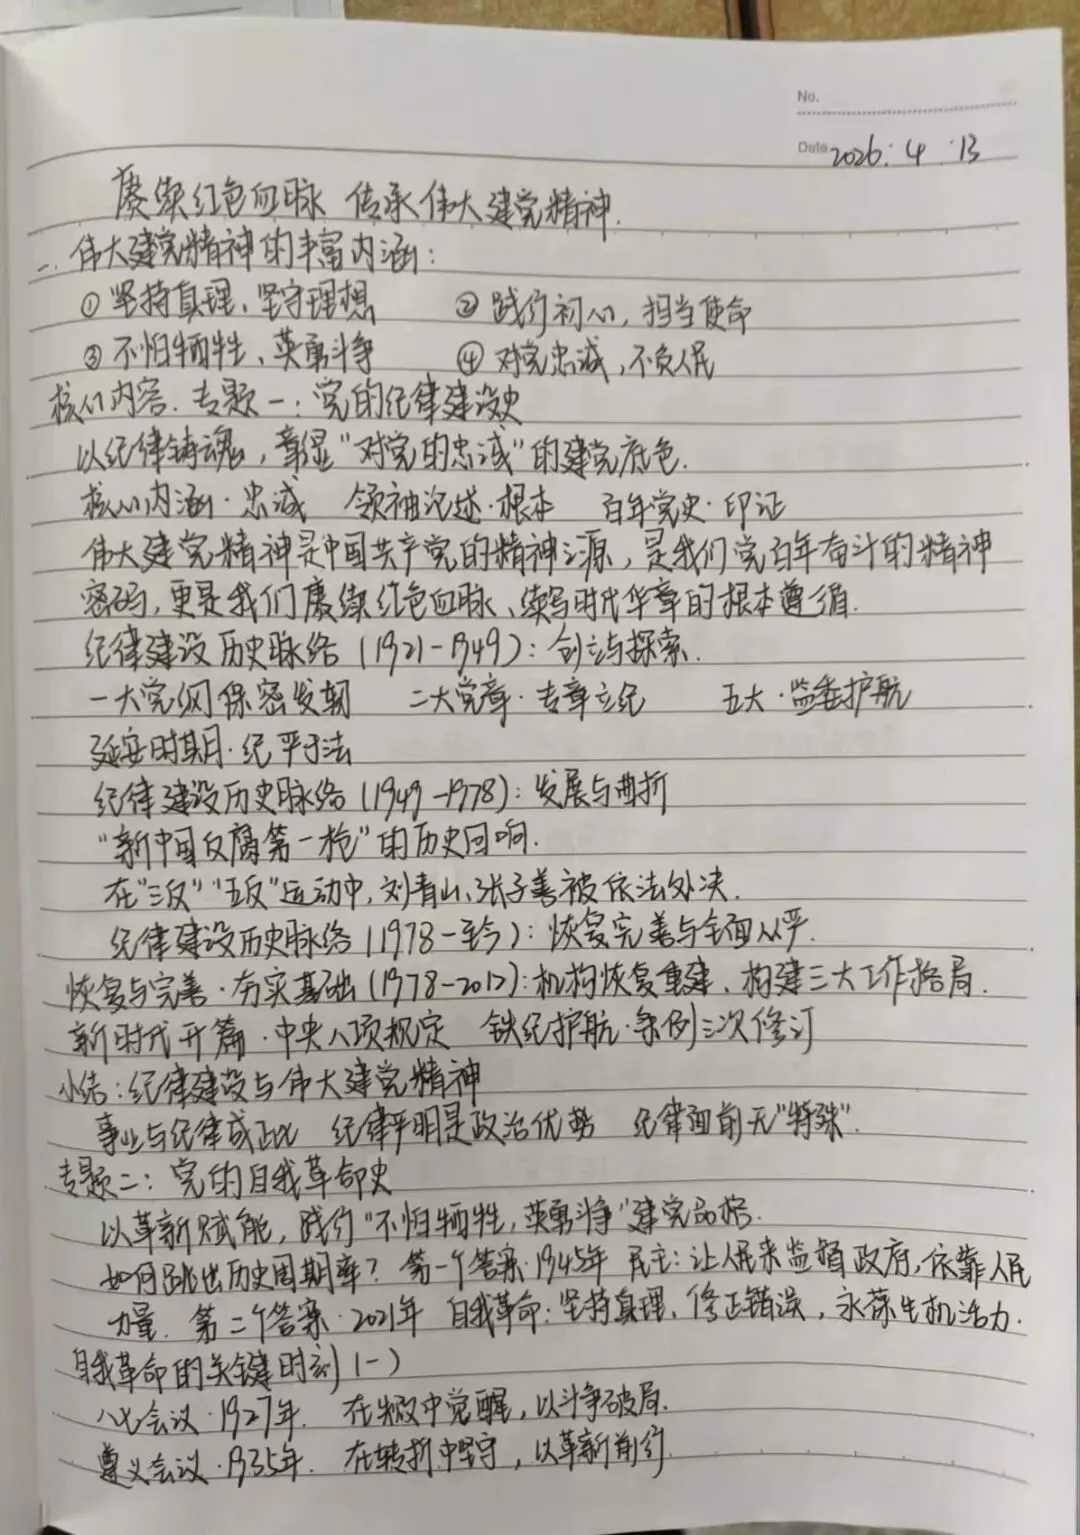 No.
Date 2026.4.13
赓续红色血脉 传承伟大建党精神.
一.伟大建党精神的丰富内涵:
①坚持真理、坚守理想 ②践行初心,担当使命
③不怕牺牲、英勇斗争 ④对党忠诚,不负人民
核心内容.专题一:党的纪律建设史
以纪律铸魂,彰显"对党的忠诚"的建党底色.
核心内涵·忠诚 领袖论述·根本 百年党史·印证
伟大建党精神是中国共产党的精神之源,是我们党百年奋斗的精神
密码,更是我们赓续红色血脉、续写时代华章的根本遵循.
纪律建设历史脉络(1921-1949):创立与探索.
一大党纲保密发轫 二大党章·专章立纪 五大·监委护航
延安时期·纪严于法
纪律建设历史脉络(1949-1978):发展与曲折
"新中国反腐第一枪"的历史回响.
在"三反""五反"运动中,刘青山、张子善被依法处决.
纪律建设历史脉络(1978-至今):恢复完善与全面从严.
恢复与完善·夯实基础(1978-2012):机构恢复重建、构建三大工作格局.
新时代开篇·中央八项规定 铁纪护航·条例三次修订
小结:纪律建设与伟大建党精神
事业与纪律成正比 纪律严明是政治优势 纪律面前无"特殊".
专题二:党的自我革命史
以革新赋能,践行"不怕牺牲,英勇斗争"建党品格.
如何跳出历史周期率?第一个答案·1945年 民主:让人民来监督政府,依靠人民
力量.第二个答案·2021年 自我革命:坚持真理、修正错误,永葆生机活力.
自我革命的关键时刻(一)
八七会议·1927年. 在失败中觉醒,以斗争破局.
遵义会议·1935年. 在转折中坚守,以革新前行.